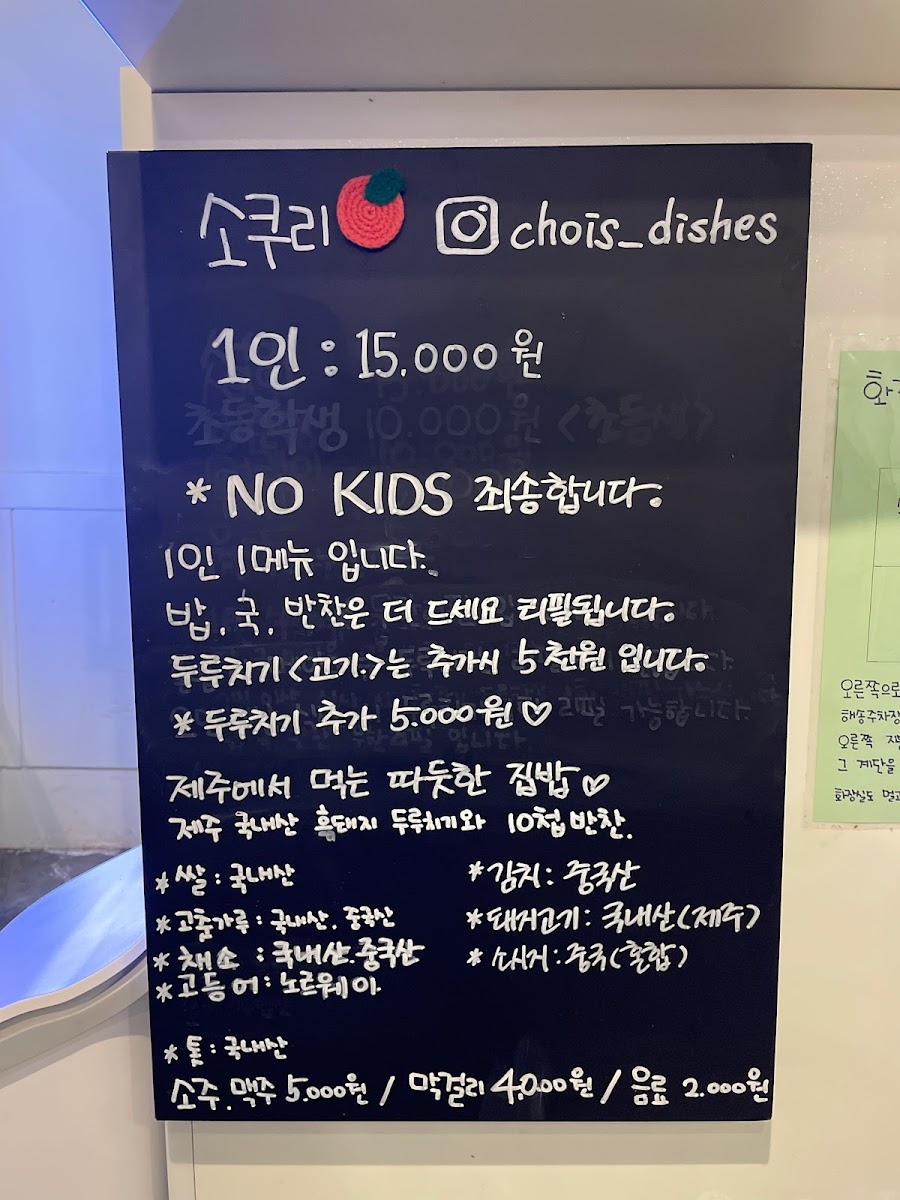 소쿠리 chois_dishes
1인 : 15.000원
초등학생 10.000원 <초등생>
* NO KIDS 죄송합니다.
1인 1메뉴 입니다.
밥.국.반찬은 더 드세요 리필됩니다.
두루치기<고기.>는 추가시 5천원 입니다.
* 두루치기 추가 5.000원♡
제주에서 먹는 따듯한 집밥♡
제주 국내산 흑돼지 두루치기와 10첩반찬.
*쌀 : 국내산
*김치 : 중국산
*고춧가루 : 국내산. 중국산
*돼지고기 : 국내산(제주)
*채소 : 국내산.중국산
*소시지 : 중국(혼합)
*고등어 : 노르웨이.
*톳 : 국내산
소주.맥주 5.000원 / 막걸리 4.000원 / 음료 2.000원
오른쪽으로
해송주차장
오른쪽
그 계단을
화장실도